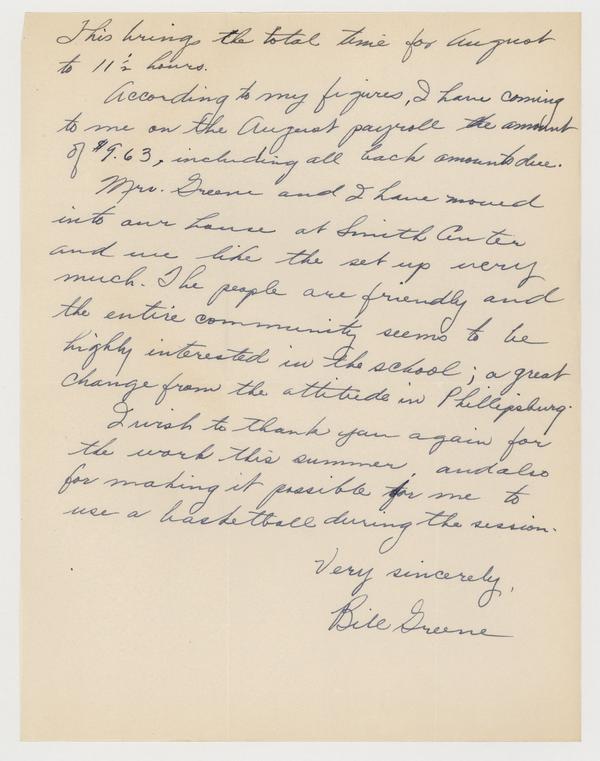 This brings the total time for August
to 11½ hours.
According to my figures, I have coming
to me on the August payroll the amount
of $9.63, including all back amounts due.
Mrs. Greene and I have moved
into our house at Smith Center
and we like the set up very
much. The people are friendly and
the entire community seems to be
highly interested in the school; a great
change from the attitude in Phillipsburg.
I wish to thank you again for
the work this summer, and also
for making it possible for me to
use a basketball during the session.
Very sincerely,
Bill Greene